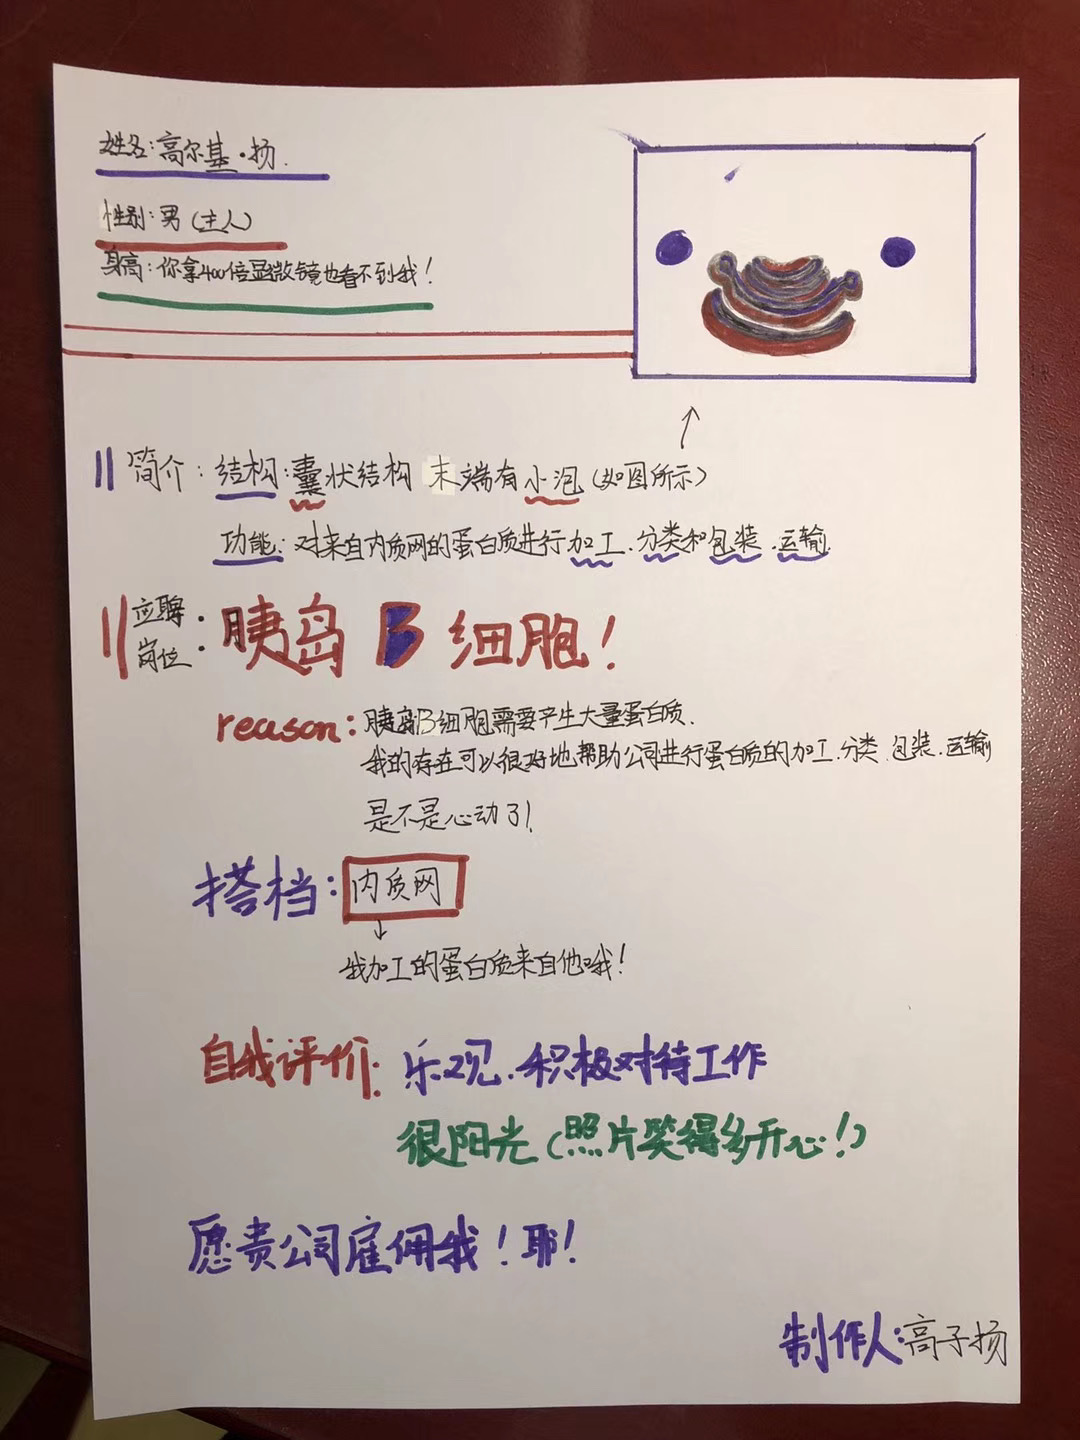 姓名:高尔基·扬.
性别:男(主人)
身高:你拿400倍显微镜也看不到我!
简介:结构:囊状结构 末端有小泡(如图所示)
功能:对来自内质网的蛋白质进行加工.分类和包装.运输.
应聘岗位:胰岛B细胞!
reason:胰岛B细胞需要产生大量蛋白质.
我的存在可以很好地帮助公司进行蛋白质的加工.分类.包装.运输
是不是心动了!
搭档:内质网
我加工的蛋白质来自他哦!
自我评价:乐观.积极对待工作
很阳光(照片笑得多开心!)
愿贵公司雇佣我!耶!
制作人:高子扬